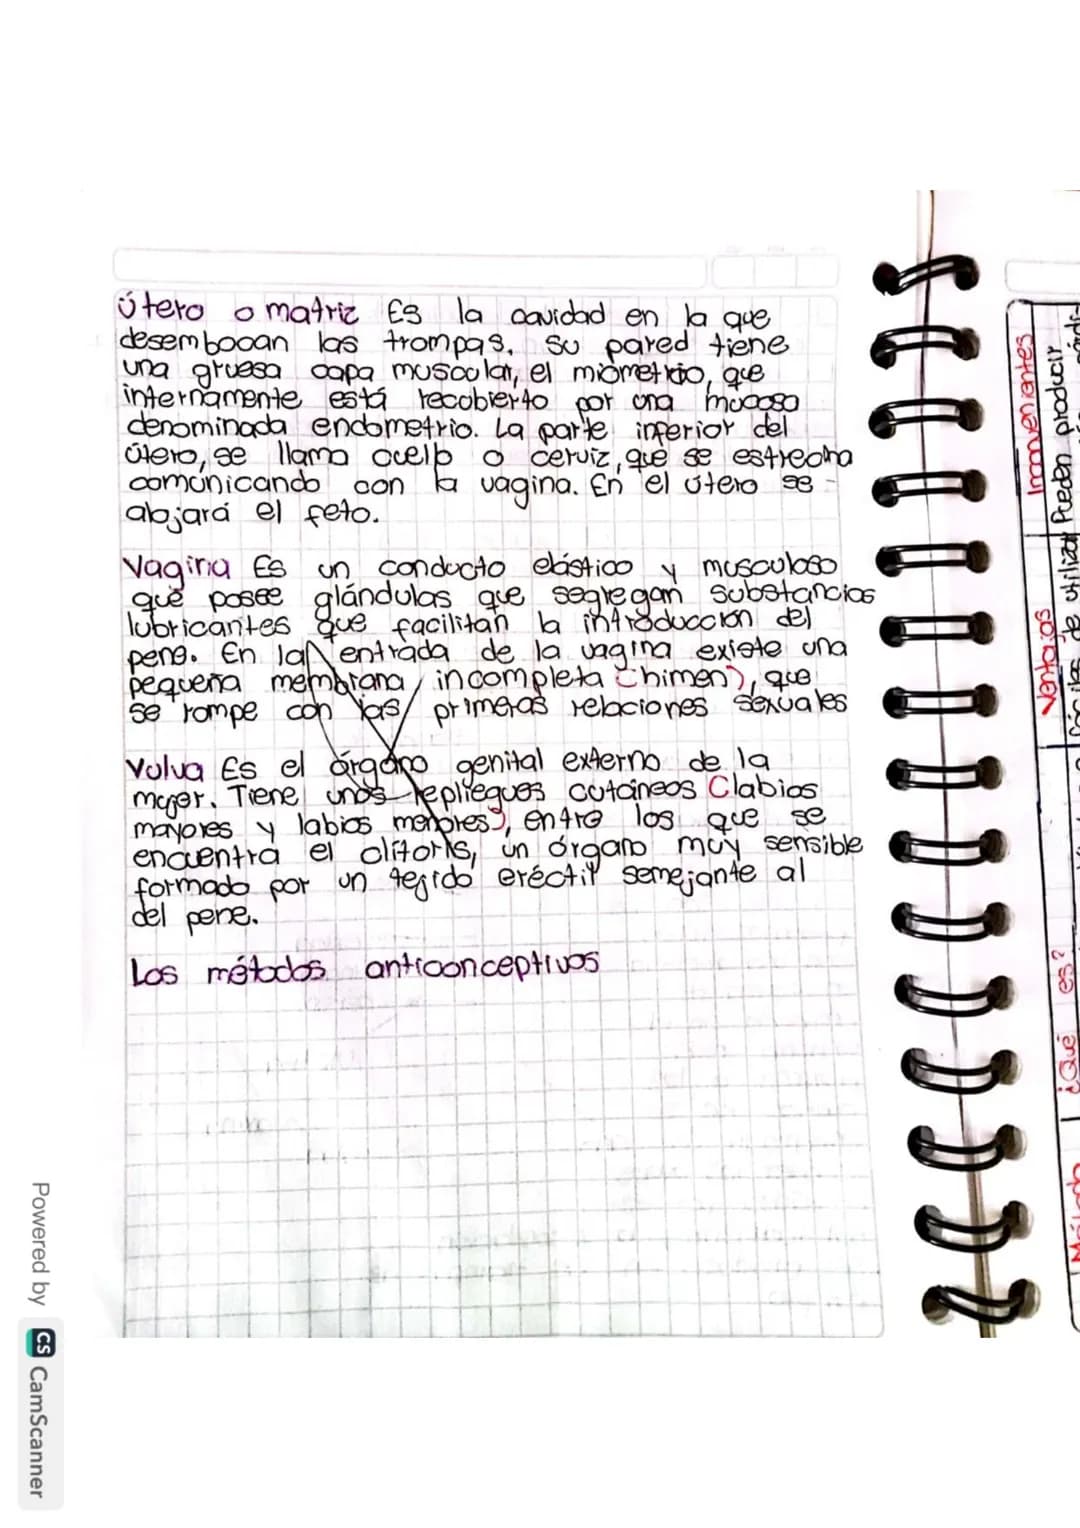 Útero o matriz Es la cavidad en la que
desembocan las trompas. Su pared tiene
una gruesa capa muscular, el miometrio, que
internamente está recobierto por una mucosa
denominada endometrio. La parte inferior del
útero, se llama cuello o cerviz, que se estrecha
comunicando con la vagina. En el útero se
alojará el feto.
Vagina Es un conducto elástico y musculoso
que posee glándulas que segregan substancias
lubricantes que facilitan la introducción del
pene. En la entrada de la vagina existe una
pequeña membrana incompleta (himen), que
se rompe con las primeras relaciones sexuales
Vulva Es el órgano genital externo de la
mujer. Tiene unos repliegues cutáneos (labios
mayores y labios menores), entre los que se
encuentra el clítoris, un órgano muy sensible
formado por un tejido eréctil semejante al
del pene.
Los métodos anticonceptivos
Método ¿Qué es? Ventajas Inconvenientes
de utilizar Pueden producir
Powered by CS CamScanner